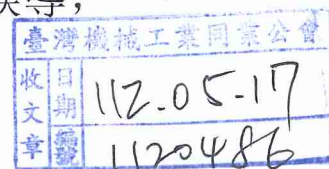 等，
臺灣機械工業同業公會
收文章 日期 112.05.17
編號 1120486